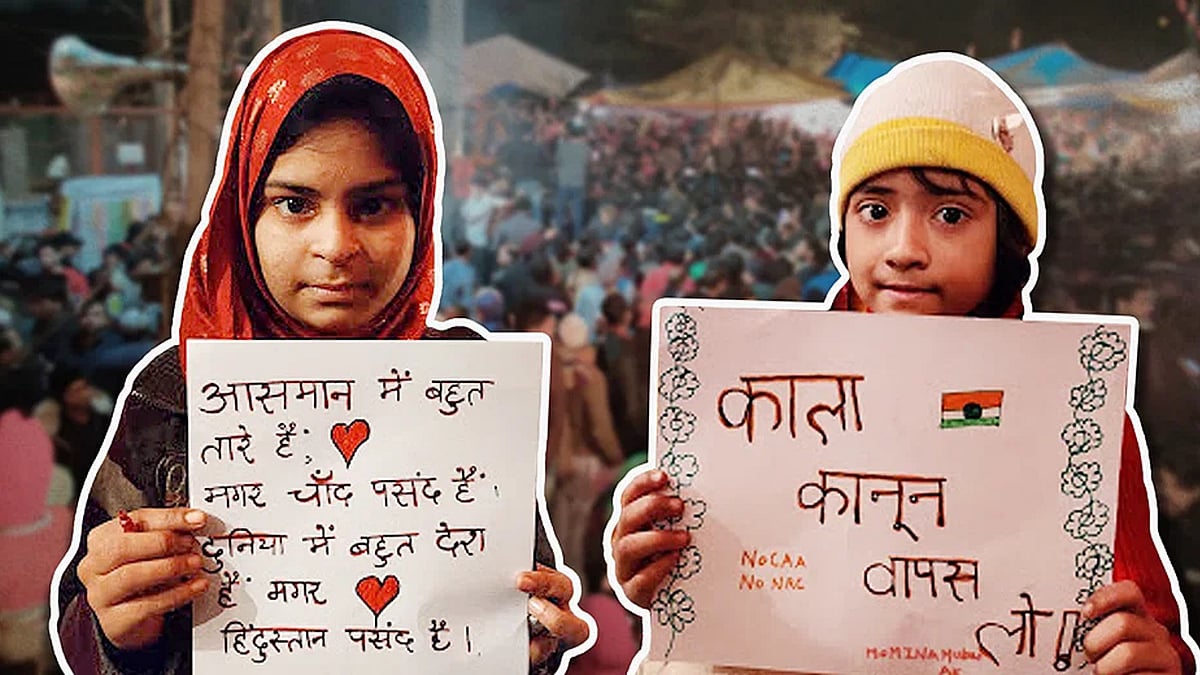 आसमान में बहुत
तारे हैं;
मगर चाँद पसंद हैं।
दुनिया में बहुत देश
हैं मगर
हिंदुस्तान पसंद हैं।
काला
कानून
NO CAA
NO NRC
वापस
लो!
MOMINA